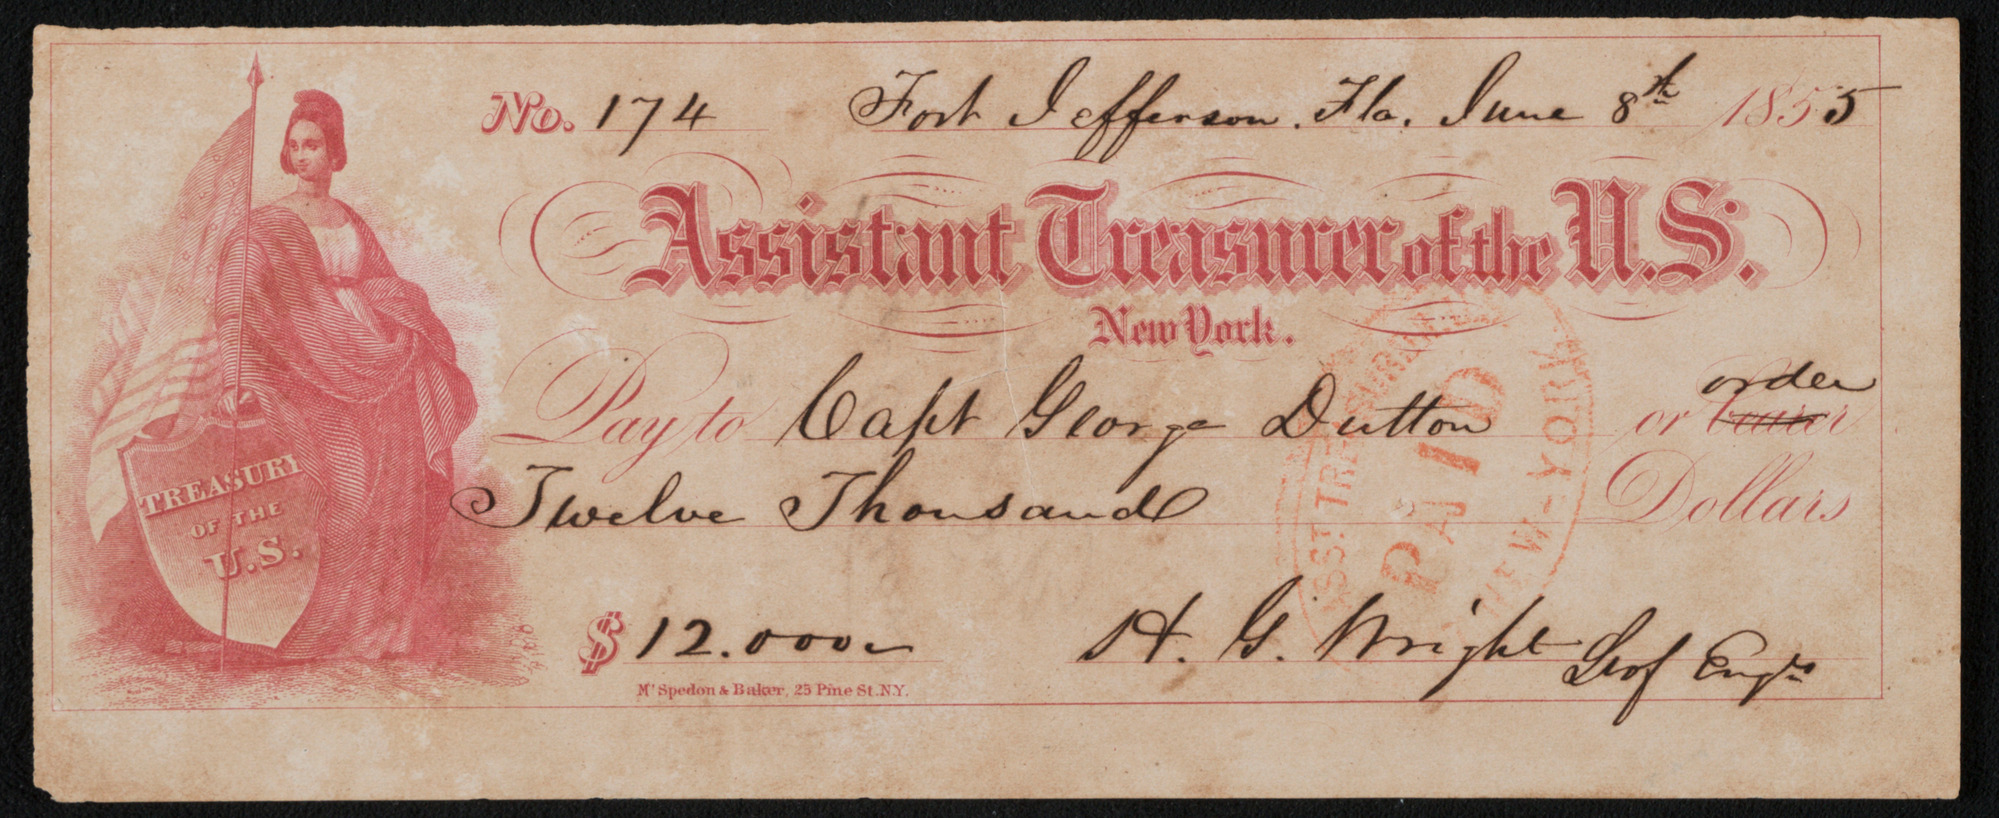 No. 174 Fort Jefferson. Fla. June 8th 1855
Assistant Treasurer of the U.S.
New York.
order
Pay to Capt George Dutton or bearer
Twelve Thousand Dollars
TREASURY
OF THE
U.S.
ASST. TREASURER
PAID
NEW-YORK
$ 12.000
H. G. Wright Lt of Engrs
Mc Spedon & Baker, 25 Pine St. N.Y.